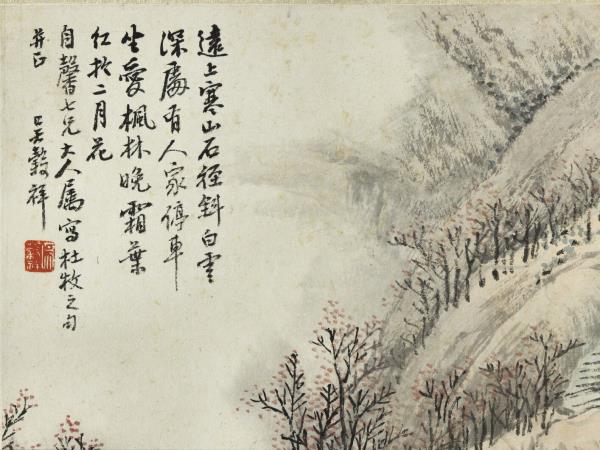 遠上寒山石徑斜白雲
深處有人家停車
坐愛楓林晚霜葉
红於二月花
自馨七兄大人属寫杜牧之句
并正 吴穀祥